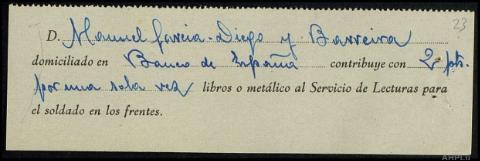 23
D. Manuel García-Diego y Barreira
domiciliado en Banco de España contribuye con 2 pts.
por una sola vez libros o metálico al Servicio de Lecturas para
el soldado en los frentes.